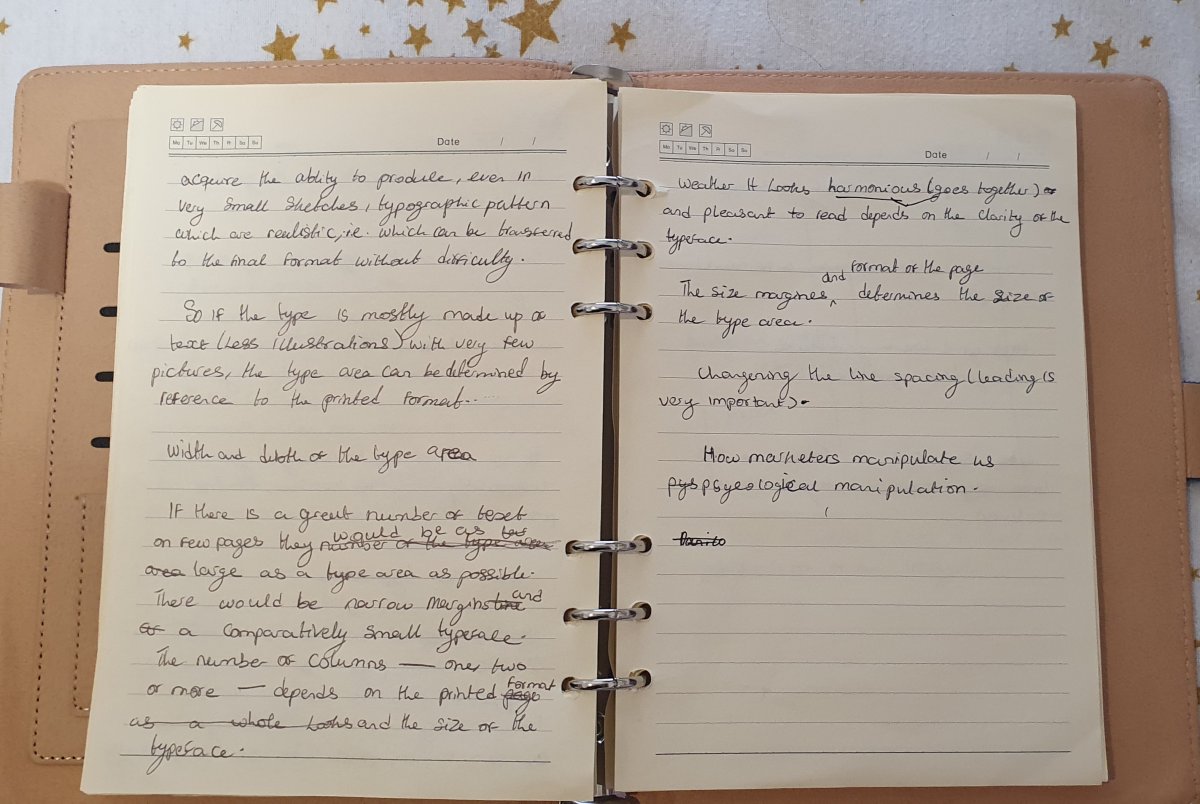 Mo Tu We Th Fr Sa Su
Date / /
acquire the ability to produce, even in
very small sketches, typographic pattern
which are realistic, i.e. which can be transferred
to the final format without difficulty.
So if the type is mostly made up o
text (Less illustrations) with very few
pictures, the type area can be determined by
reference to the printed format..
Width and depth of the type area
If there is a great number of text
would be as
on few pages they number of the type area
area large as a type area as possible.
There would be narrow margins and
or a comparatively small typeface.
The number of columns — one, two
or more — depends on the printed page format
as a whole looks and the size of the
typeface.
Mo Tu We Th Fr Sa Su
Date / /
Weather it looks harmonious (goes together) or
and pleasant to read depends on the clarity of the
typeface.
and format of the page
The size margines, determines the size of
the type area.
Changering the line spacing (leading is
very important).
How marketers manipulate us
pys psycological manipulation.